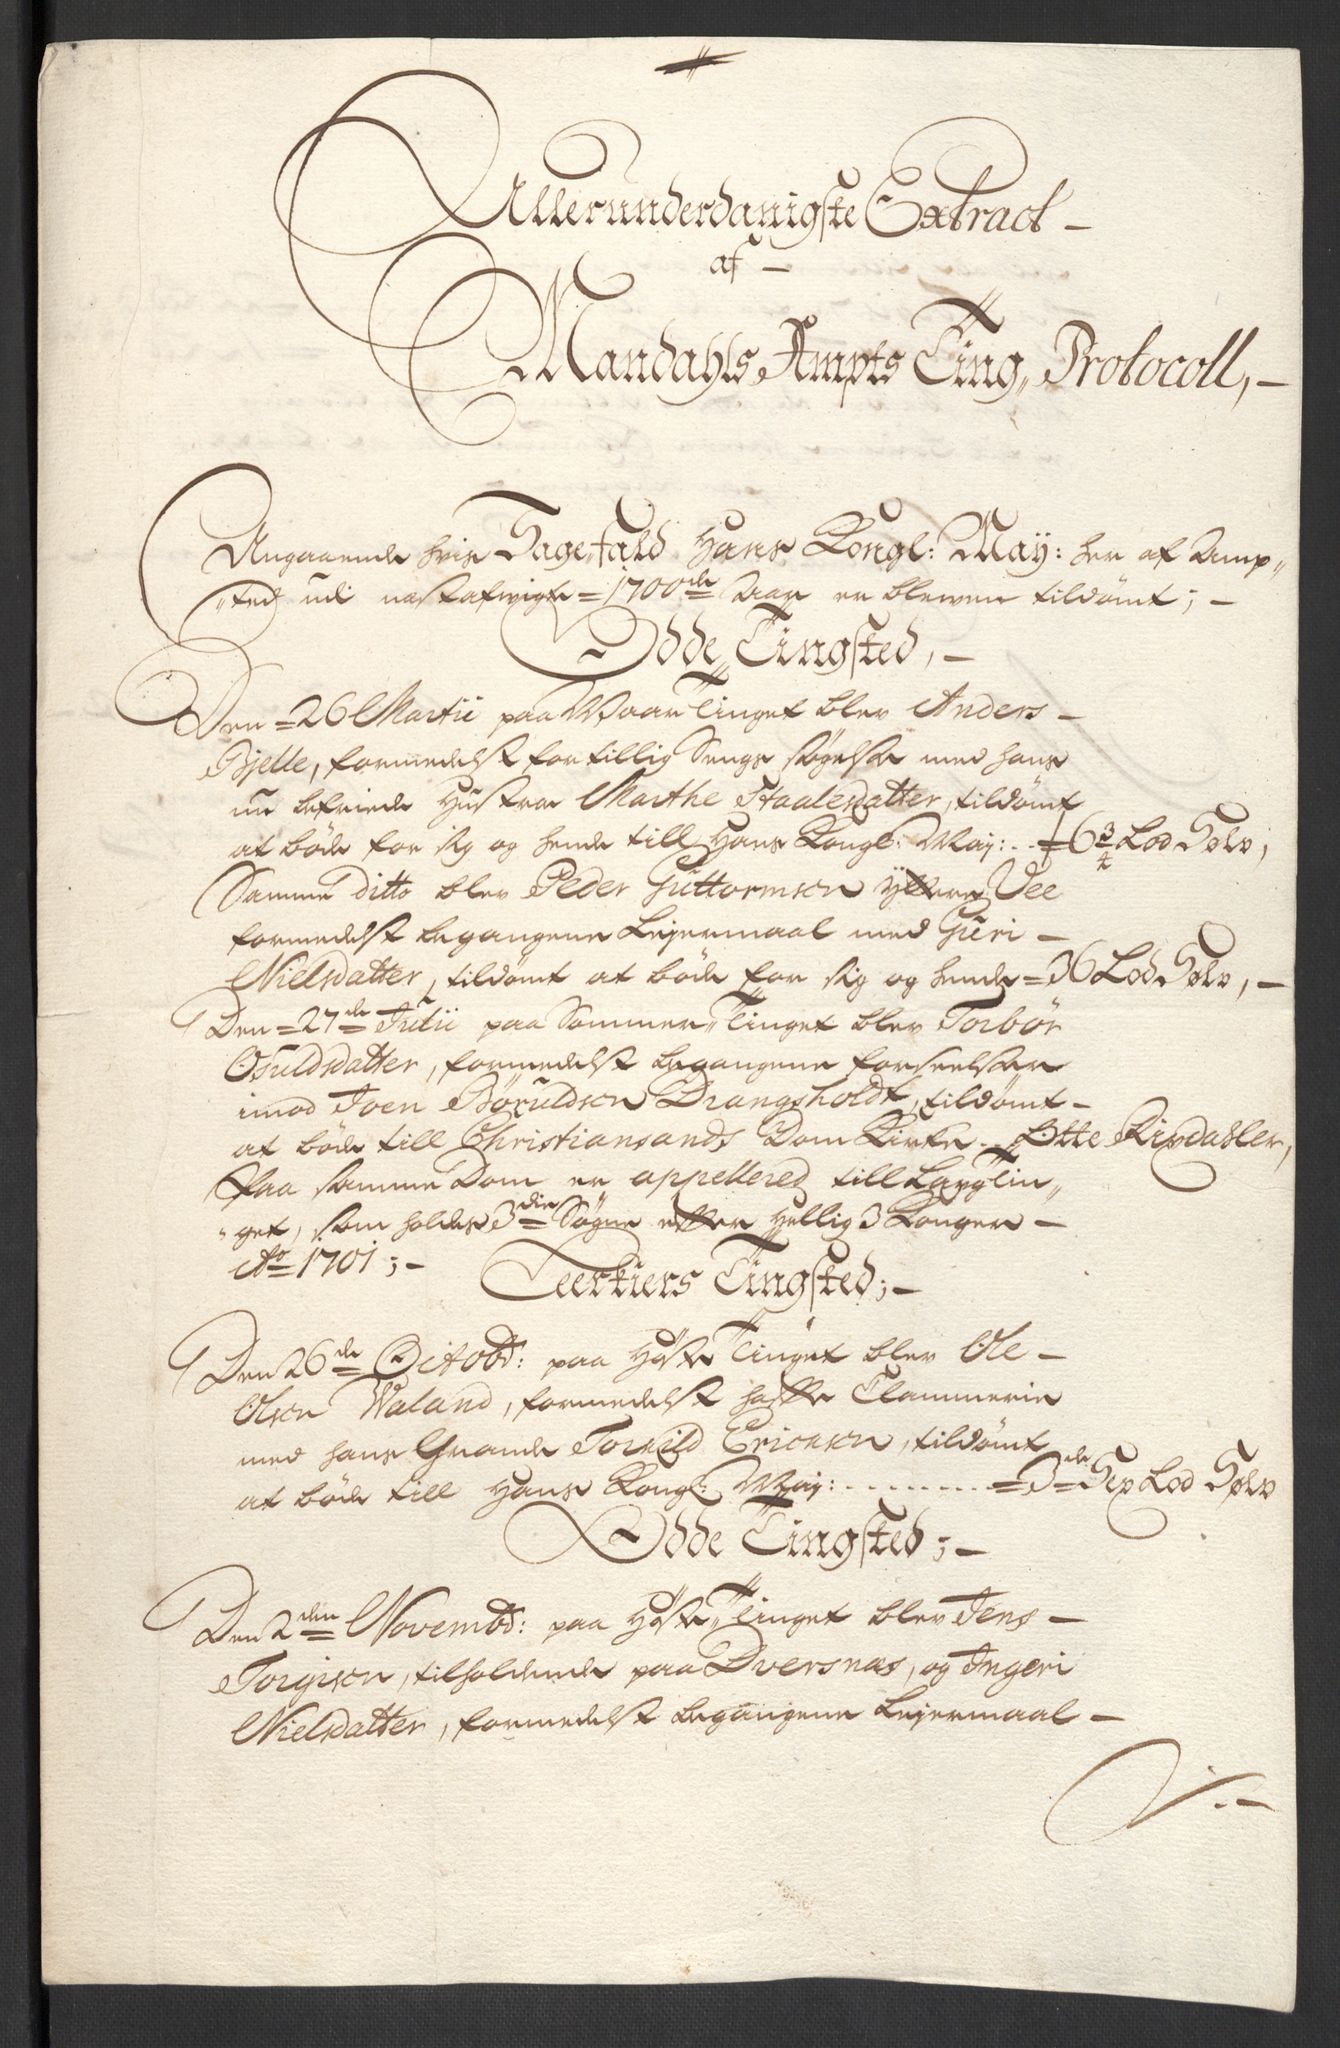 Allerunderdanigste Extract –
af –
Mandahls Ampts Ting„ Protocoll, –
Angaaende hvis Sagefald Hans Kongl: May: her af Amp„
„ted udi nestafvigte = 1700de Aar er blewen tildömt; –
Odde Tingsted, –
Den = 26 Martii paa Waar Tinget blev Anders –
Bjelle, formedelst fortillig Sengs søgelse med hans
nu befriede Hustroe Marthe Staalesdatter, tildömt
at böde for sig og hende till Hans Kongl: May: .. 6 3/4 Lod Sølv,
Samme Ditto blev Peder Guttormsen Yttere Vee
formedelst begangene Lejermaal med Guri –
Nielsdatter, tildömt at böde for sig og hende = 36 Lod Sølv, –
Den = 27de Julii paa Sommer„ Tinget blev Torbör
Osuldsdatter, formedelst begangene forseelser
imod JoenBöruldsen Drangsholdt, tildömt –
at böde till Christiansands Dom Kirke .. Otte Rixdahler,
Paa samme Dom er appellered till Laugtin„
„get, som holdes 3die Søgne efter Hellig 3 Konger –
Ao 1701; –
Teerkiers Tingsted; –
Den 26de Octobr: paa Høste Tinget blev Ole –
Olsen Waland, formedelst hafte Clammerie
med hans Grande Torkild Ericksen, tildömt
at böde till Hans Kongl: May: ......... = 3de Sex Lod Sølv
Odde Tingsted; –
Den 2den Novembr: paa Høste„ Tinget blev Jens –
Torgisen, tilholdende paa Dversnæs, og Ingeri
Nielsdatter, formedelst begangene Lejermaal –